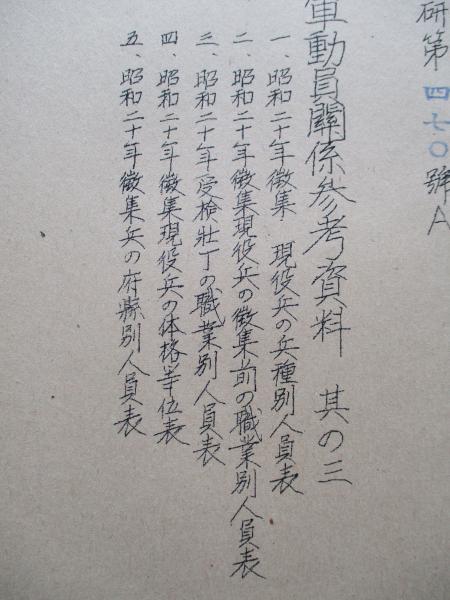 研第四七〇號A
軍動員關係參考資料 其の三
一、昭和二十年徵集 現役兵の兵種別人員表
二、昭和二十年徵集現役兵の徵集前の職業別人員表
三、昭和二十年受檢壯丁の職業別人員表
四、昭和二十年徵集現役兵の体格等位表
五、昭和二十年徵集兵の府縣別人員表